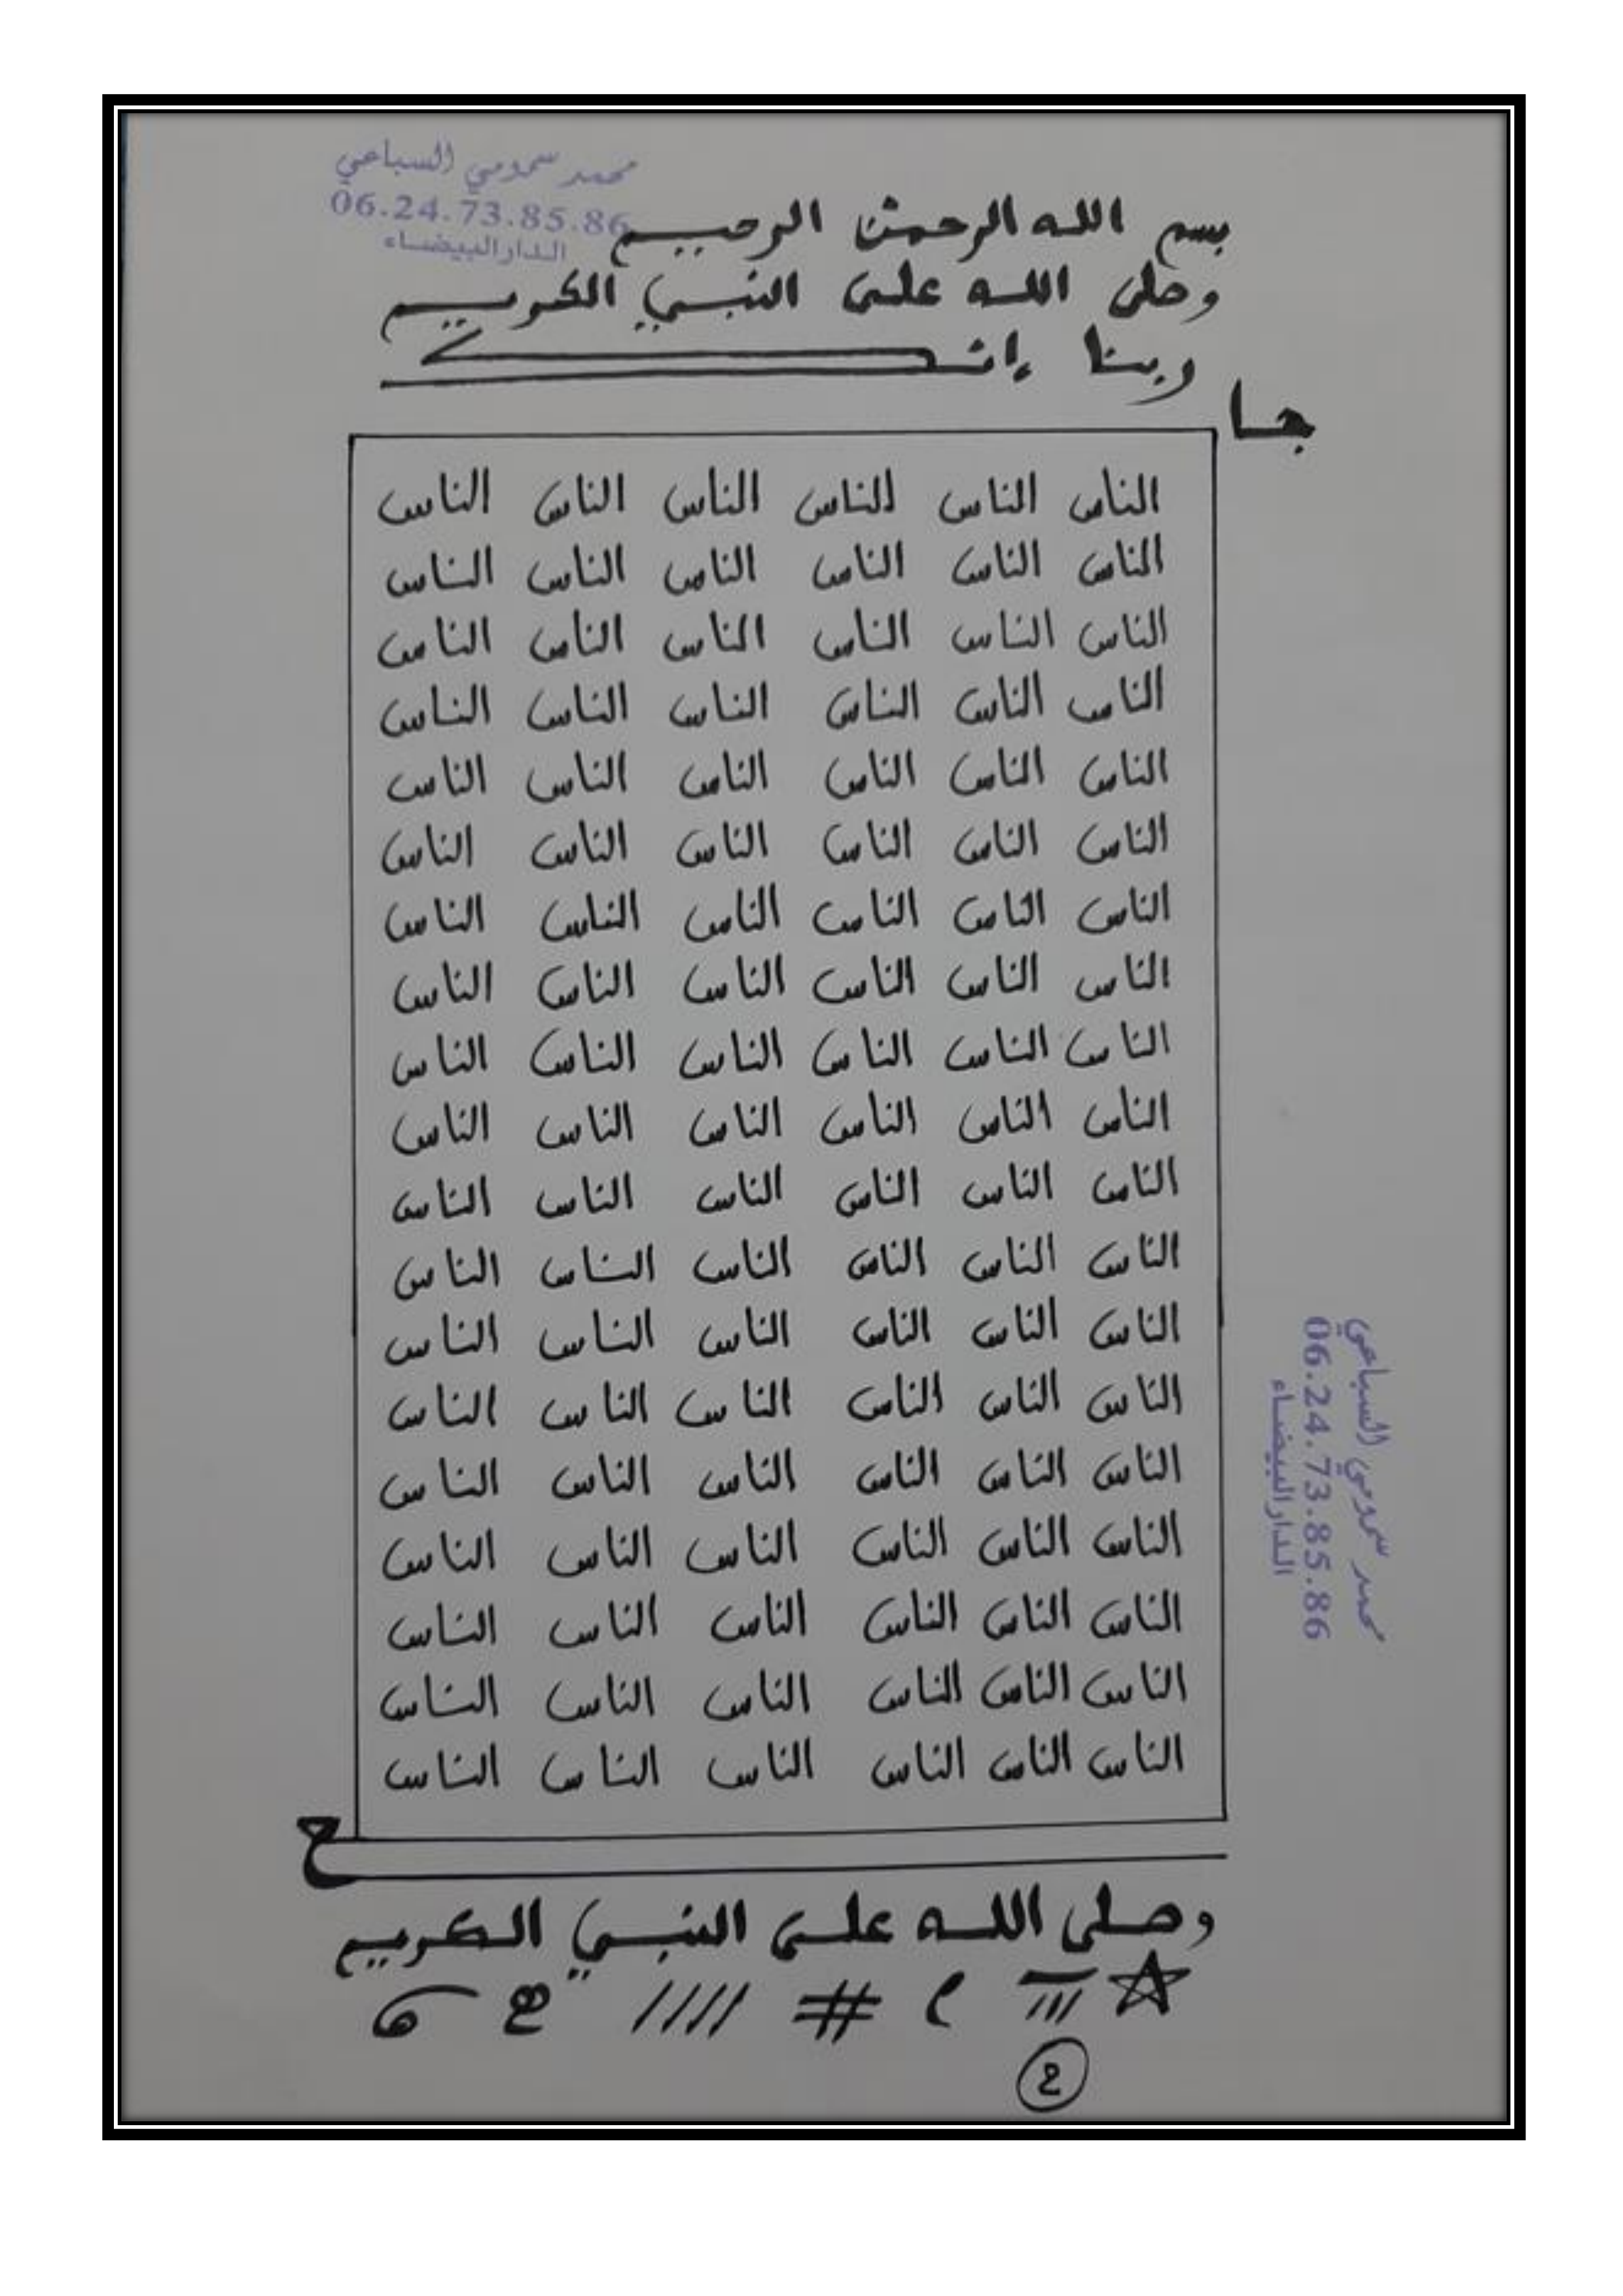 محمد سمومي السباعي
06.24.73.85.86
الدار البيضاء
بسم الله الرحمن الرحيم
وصلى الله على النبي الكريم
ربنا إنك
جا
الناس الناس الناس الناس الناس الناس
الناس الناس الناس الناس الناس الناس
الناس الناس الناس الناس الناس الناس
الناس الناس الناس الناس الناس الناس
الناس الناس الناس الناس الناس الناس
الناس الناس الناس الناس الناس الناس
الناس الناس الناس الناس الناس الناس
الناس الناس الناس الناس الناس الناس
الناس الناس الناس الناس الناس الناس
الناس الناس الناس الناس الناس الناس
الناس الناس الناس الناس الناس الناس
الناس الناس الناس الناس الناس الناس
الناس الناس الناس الناس الناس الناس
الناس الناس الناس الناس الناس الناس
الناس الناس الناس الناس الناس الناس
الناس الناس الناس الناس الناس الناس
الناس الناس الناس الناس الناس الناس
الناس الناس الناس الناس الناس الناس
الناس الناس الناس الناس الناس الناس
مع
محمد سمومي السباعي
06.24.73.85.86
الدار البيضاء
وصلى الله على النبي الكريم
2